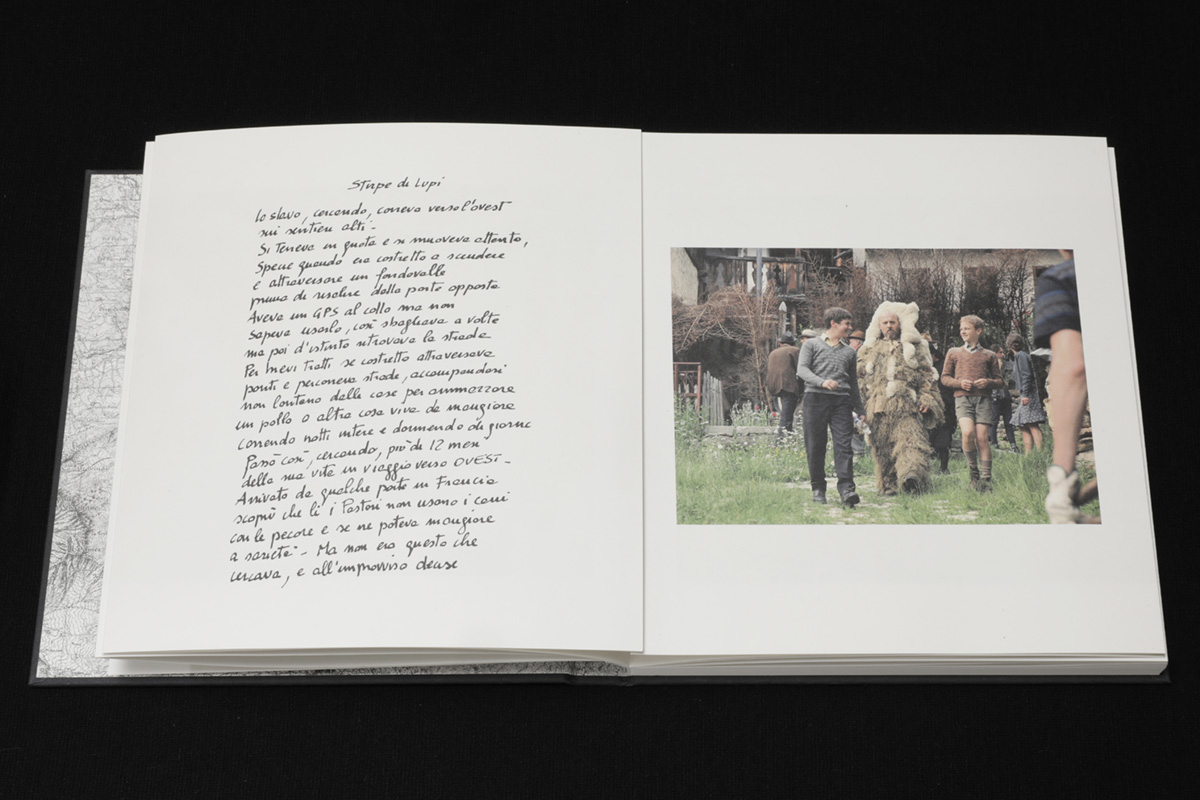 Stirpe di Lupi
Lo slavo, cercando, correva verso l'ovest
sui sentieri alti -
Si teneva in quota e si muoveva attento,
Specie quando era costretto a scendere
e attraversare un fondovalle
prima di risalire dalla parte opposta
Aveva un GPS al collo ma non
sapeva usarlo, così sbagliava a volte
ma poi d'istinto ritrovava la strada
Per brevi tratti se costretto attraversava
ponti e percorreva strade, accompandosi
non lontano dalle case per ammazzare
un pollo o altra cosa viva da mangiare
correndo notti intere e dormendo di giorno
Passò così, cercando, più di 12 mesi
della sua vita in viaggio verso OVEST -
Arrivato da qualche parte in Francia
scoprì che lì i Pastori non usano i cani
con le pecore e se ne poteva mangiare
a sazietà - Ma non era questo che
cercava, e all'improvviso decise